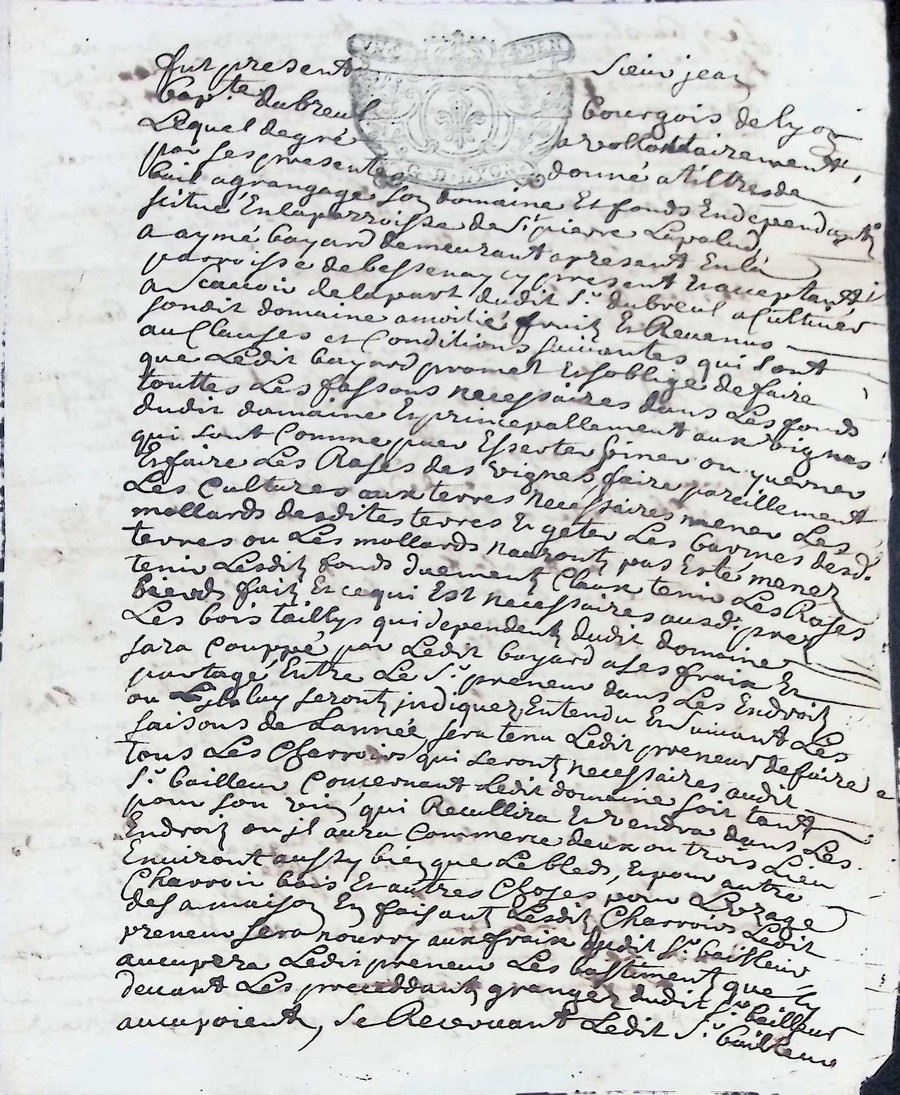 fut present Sieur jean
bap.te dubreuil bourgois de lyon
Lequel degré a vollontairement
par ses presentes donné a tiltre de
bail a grangage Son domaine Et fonds En dependants
scitué En la parroisse de St. pierre Lapalud,
a aymé bayard demeurant a present En la
parroisse de bessenay cy present Et acceptant
a Scavoir de la part dudit Sr. dubreuil a Cultiver
sondit domaine a moitié fruit Et Revenus
au Clauses et Conditions suivantes qui sont
que Ledit bayard promet Et soblige de faire
touttes Les fassons necessaires dans Les fonds
dudit domaine Et principallement aux vignes
qui sont Comme puer Esserter biner ou
Et faire Les Rases des vignes faire pareillement
Les Cultures aux terres necessaires mener Les
mollards desdites terres Et geter Les barmes desd.
terres ou Les mollards nauront pas Esté menez
tenir Lesdits fonds duement Claux tenir Les Rases
bierds fait Et ce qui Est necessaires ausd. prez
Les bois taillys qui dependent dudit domaine
sara Couppé par Ledit bayard a ses fraix Et
partagé Entre Le Sr. preneur dans Les Endroit
ou luy seront jndiquez, Entendu En suivant Les
saisons de Lannée, sera tenu Ledit preneur de faire
tous Les Charrois qui seront necessaires audit
Sr. bailleur Concernant Ledit domaine soit tant
pour son vin qui Recullira Et vendra dans Les
Endroit ou jl aura Commerce deux ou trois Lieu
Environt aussy bien que Le bleds, Et pour autre
Charroir bois Et autres Choses pour Luzage
de sa maison En faisant Lesdits Charrois Ledit
preneur sera nourry aux fraix dudit Sr. bailleur
aucupera Ledit preneur Les bastiment que cy
devant Les preceddant granger dudit Sr. bailleur
aucupoient, Se Recervant Ledit Sr. bailleur
G. D. LYON